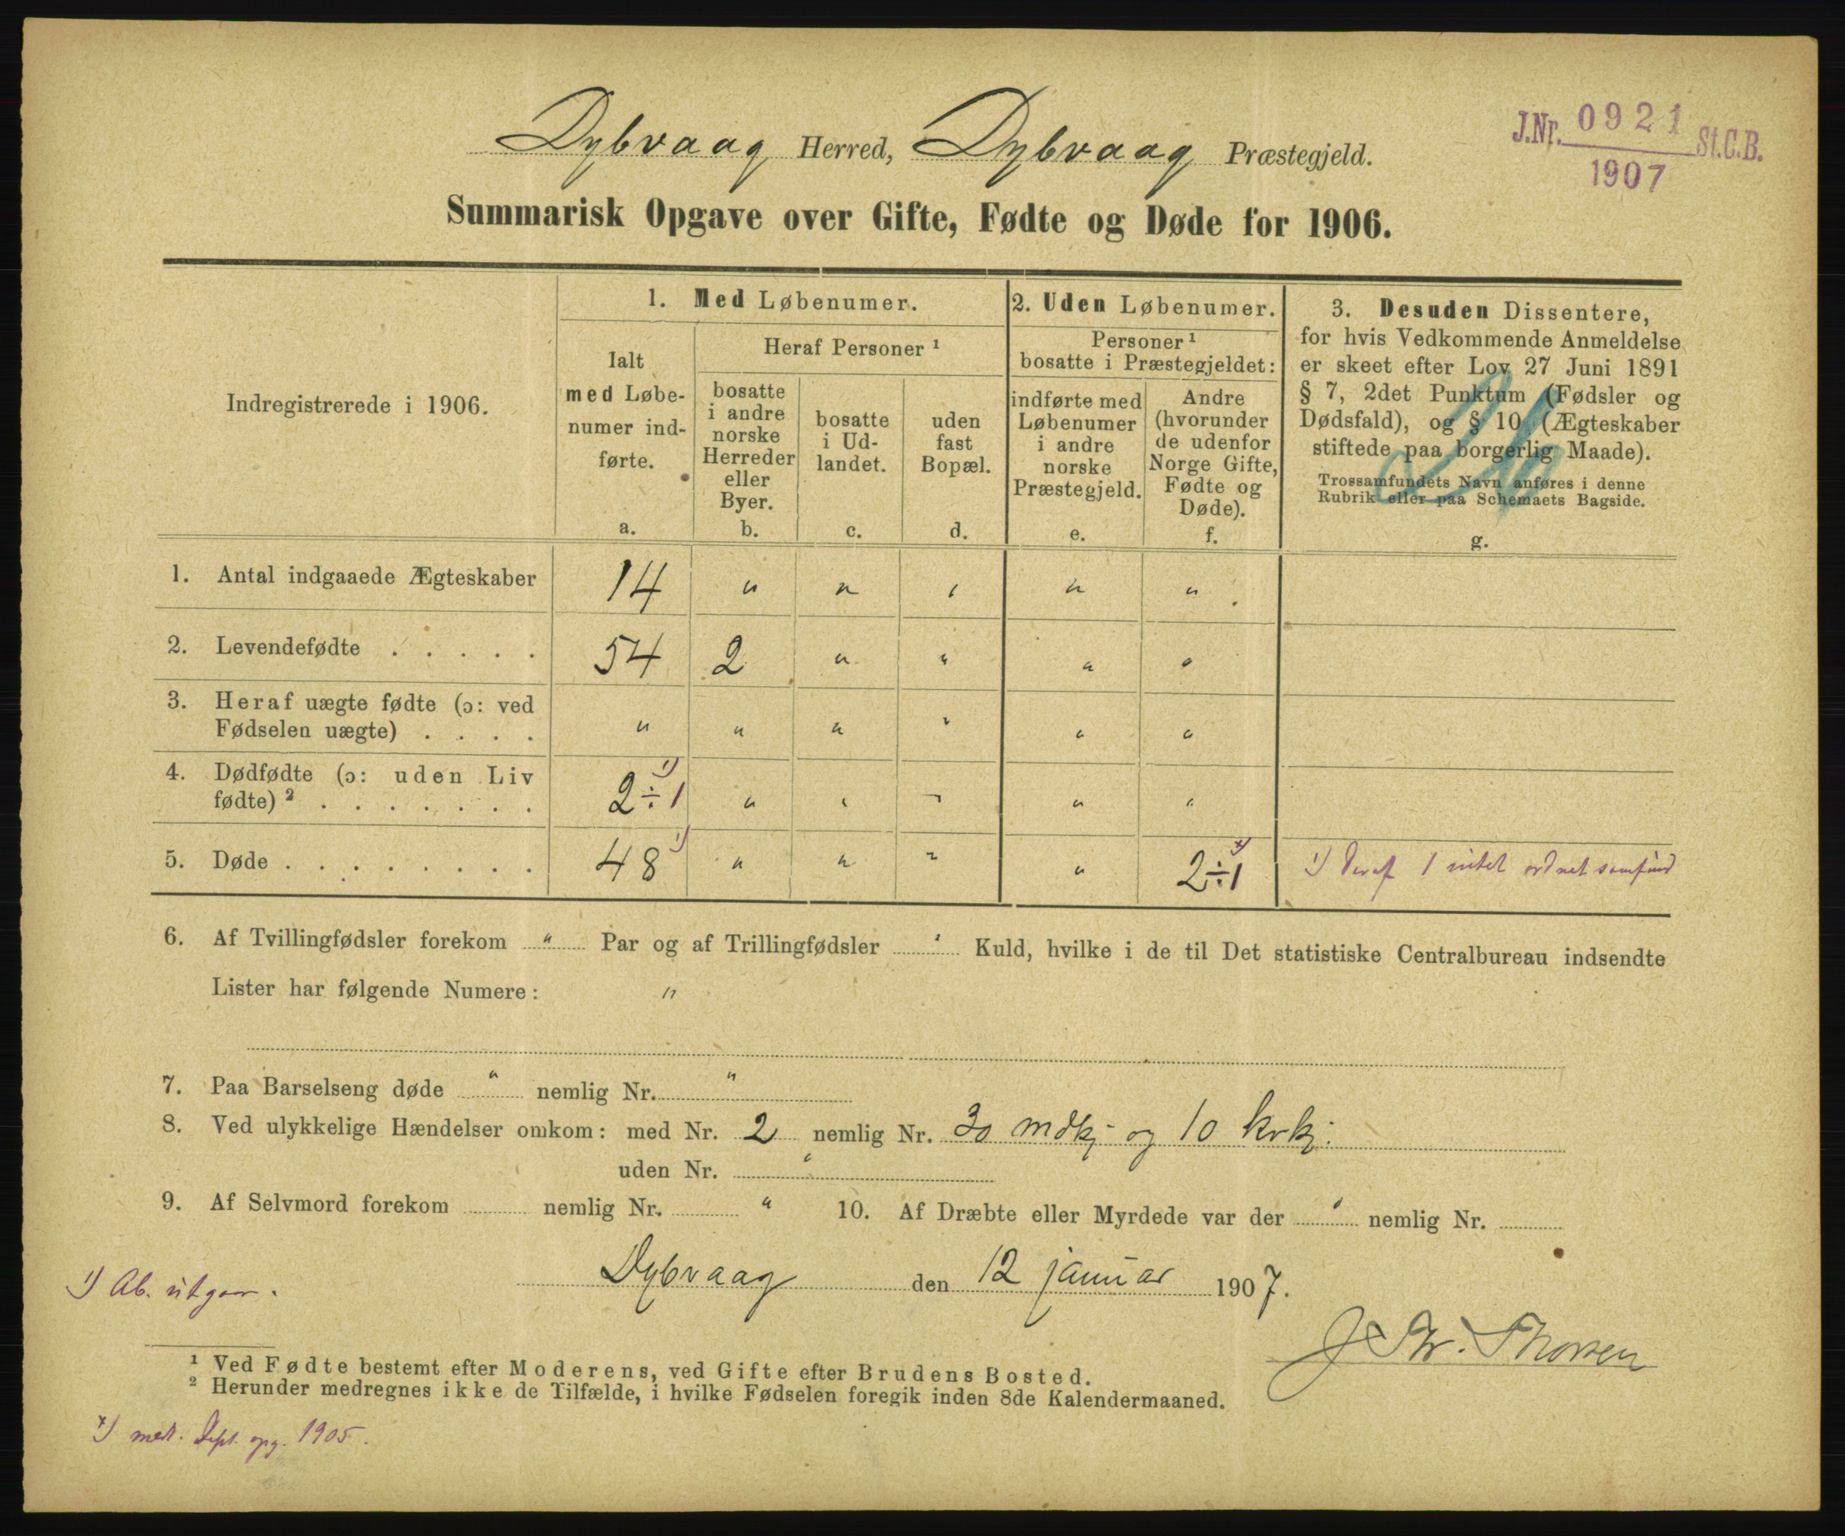 Dybvaag Herred, Dybvaag Præstegjeld.
J.Nr. 0921 St.C.B.
1907
Summarisk Opgave over Gifte, Fødte og Døde for 1906.
Indregistrerede i 1906.
1. Med Løbenumer.
Ialt
med Løbe-
numer ind-
førte.
a.
Heraf Personer ¹
bosatte
i andre
norske
Herreder
eller
Byer.
b.
bosatte
i Ud-
landet.
c.
uden
fast
Bopæl.
d.
2. Uden Løbenumer.
Personer ¹
bosatte i Præstegjeldet:
indførte med
Løbenumer
i andre
norske
Præstegjeld.
e.
Andre
(hvorunder
de udenfor
Norge Gifte,
Fødte og
Døde).
f.
3. Desuden Dissentere,
for hvis Vedkommende Anmeldelse
er skeet efter Lov 27 Juni 1891
§ 7, 2det Punktum (Fødsler og
Dødsfald), og § 10 (Ægteskaber
stiftede paa borgerlig Maade).
Trossamfundets Navn anføres i denne
Rubrik eller paa Schemaets Bagside.
g.
1. Antal indgaaede Ægteskaber 14 " " " " "
2. Levendefødte . . . . . 54 2 " " " "
3. Heraf uægte fødte (ɔ: ved
Fødselen uægte) . . . . " " " " " "
4. Dødfødte (ɔ: uden Liv
fødte) ² . . . . . . . 2÷1 ¹) " " " " "
5. Døde . . . . . . . . 48 ¹) " " " " 2÷1 ˣ) ¹) Deraf 1 intet ordnet samfund
6. Af Tvillingfødsler forekom " Par og af Trillingfødsler " Kuld, hvilke i de til Det statistiske Centralbureau indsendte
Lister har følgende Numere: "
7. Paa Barselseng døde " nemlig Nr. "
8. Ved ulykkelige Hændelser omkom: med Nr. 2 nemlig Nr. 30 mdkj og 10 kvkj.
uden Nr. "
9. Af Selvmord forekom nemlig Nr. " 10. Af Dræbte eller Myrdede var der " nemlig Nr.
Dybvaag den 12 januar 1907.
¹) Ab. utgaar.
J Chr. Thorsen
¹ Ved Fødte bestemt efter Moderens, ved Gifte efter Brudens Bosted.
² Herunder medregnes ikke de Tilfælde, i hvilke Fødselen foregik inden 8de Kalendermaaned.
ˣ) medt. Dept. opg. 1905.